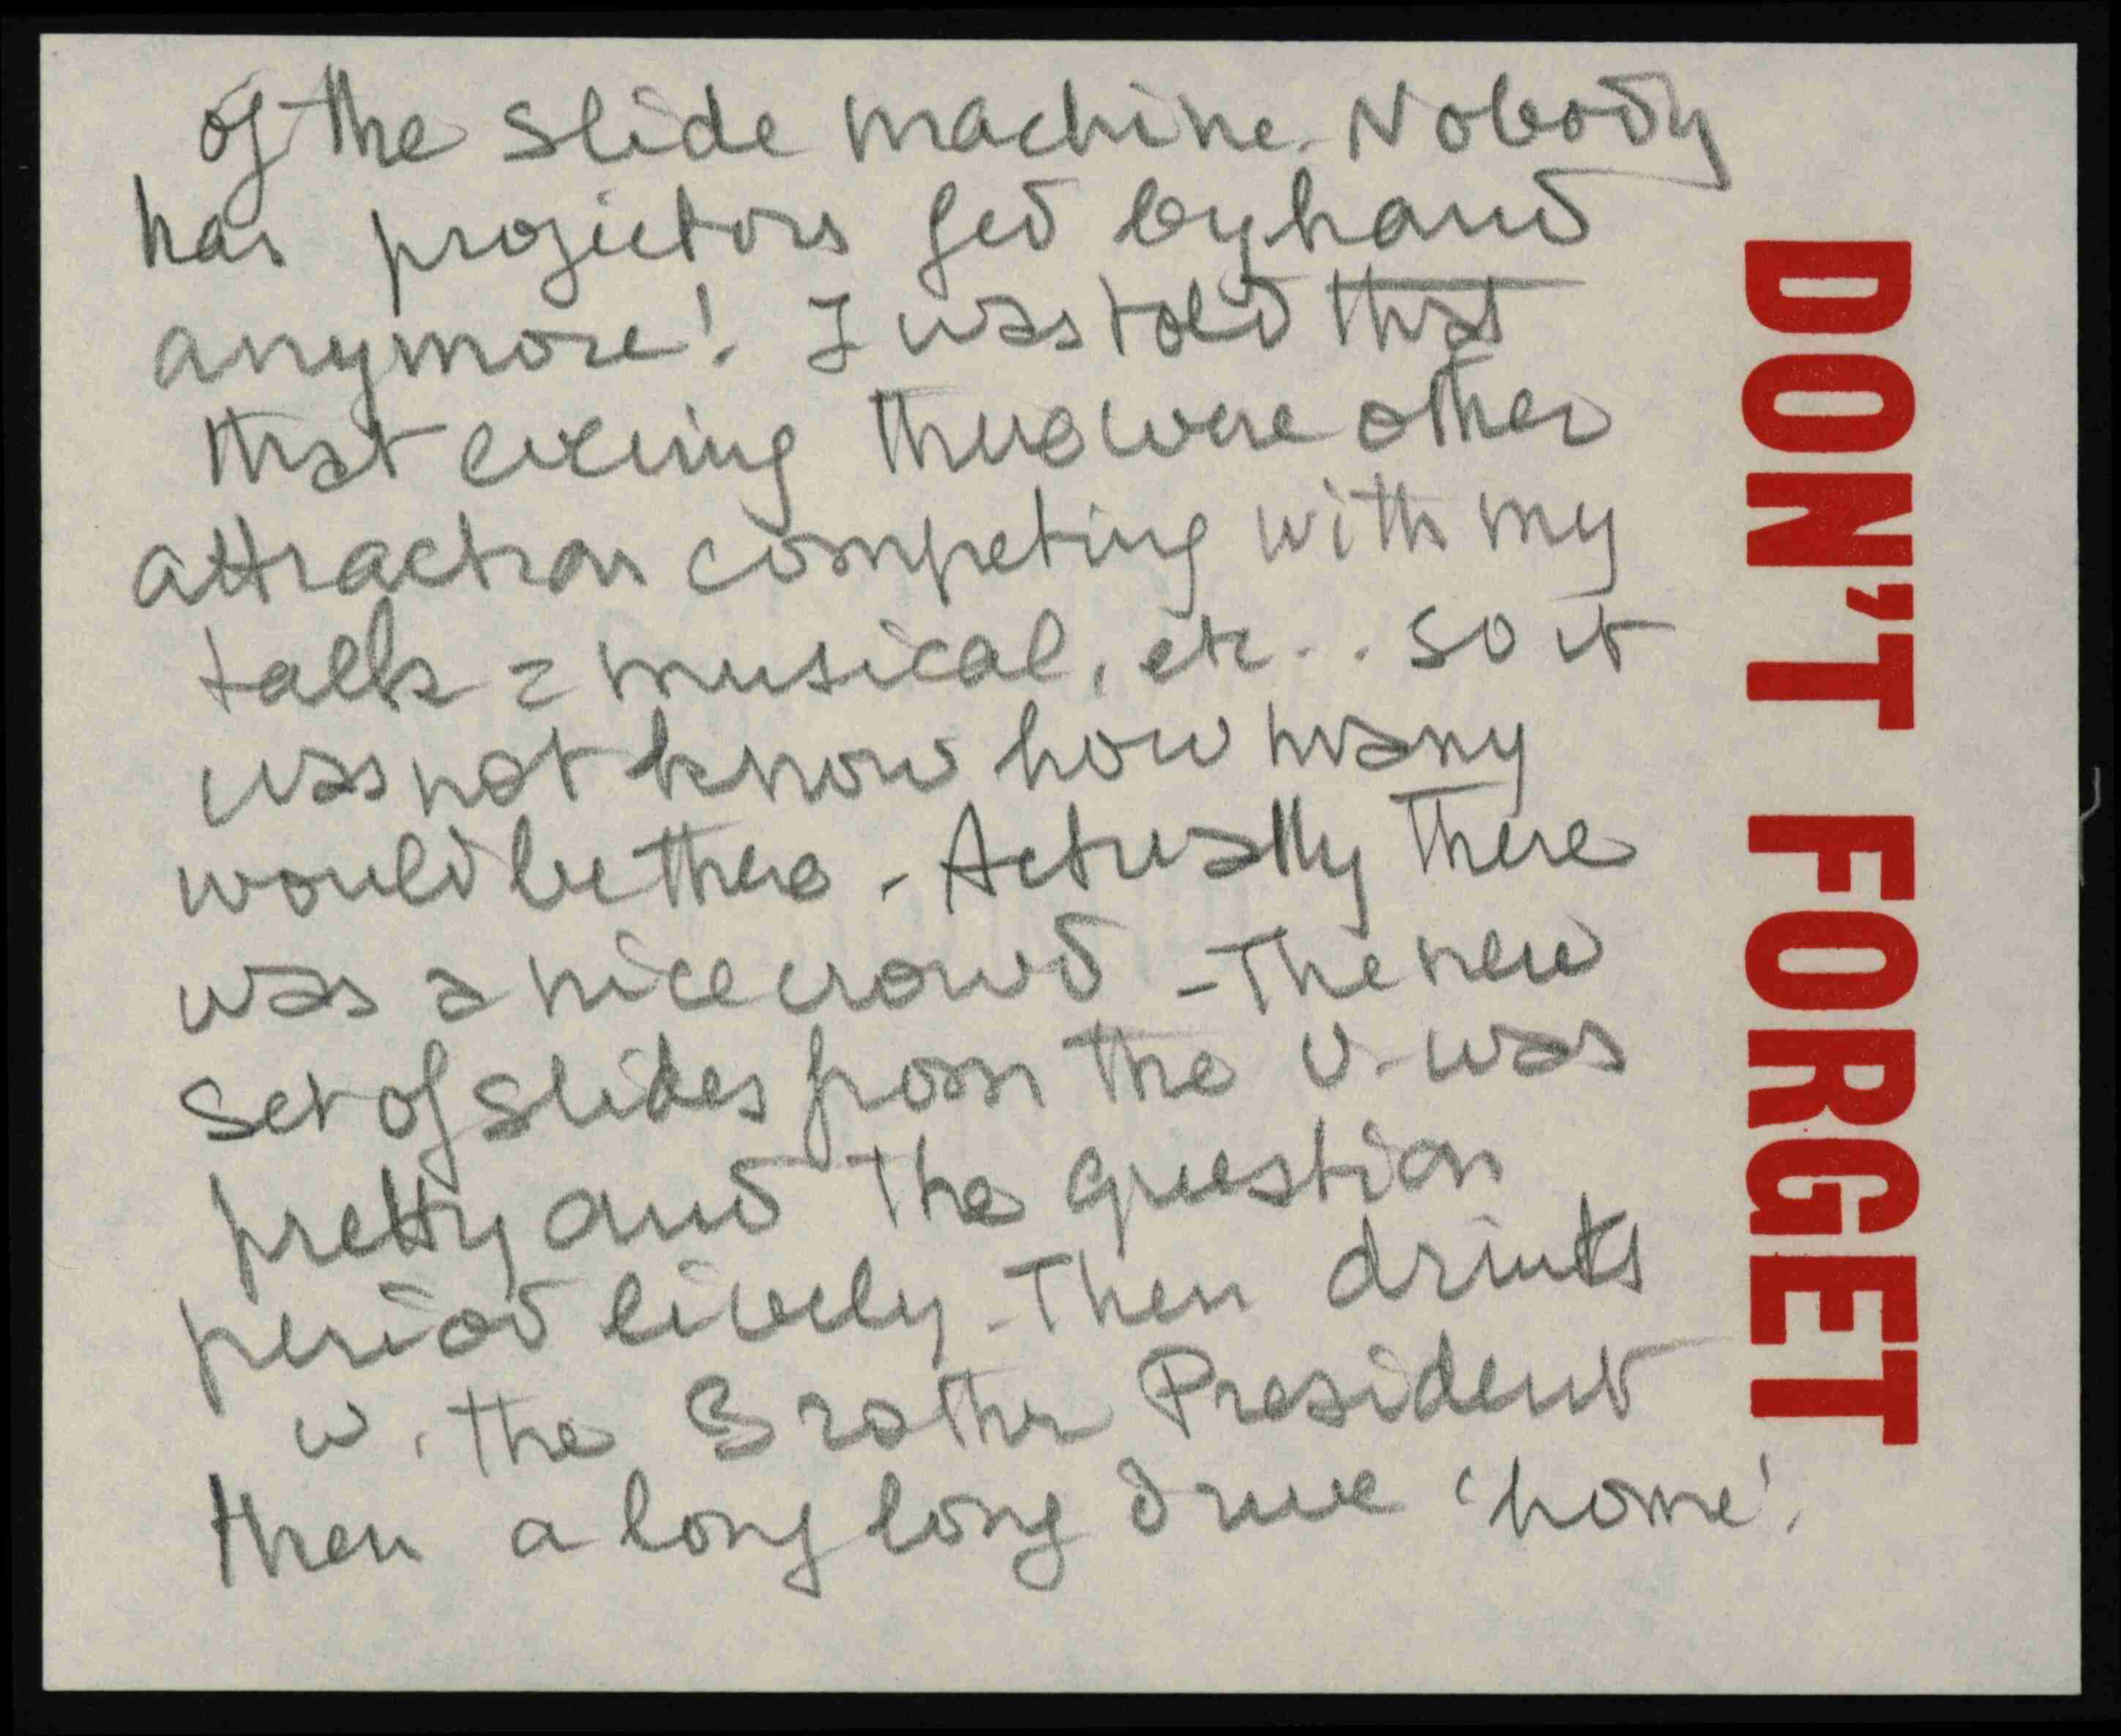 of the slide machine. Nobody
has projectors fed by hand
anymore! I was told that
that evening there were other
attraction competing with my
talk = musical, etc... so it
was not know how many
would be there - Actually there
was a nice crowd - The new
set of slides from the U. was
pretty and the question
period lively - Then drinks
w. the Brother President
then a long long drive 'home'.
DON'T FORGET